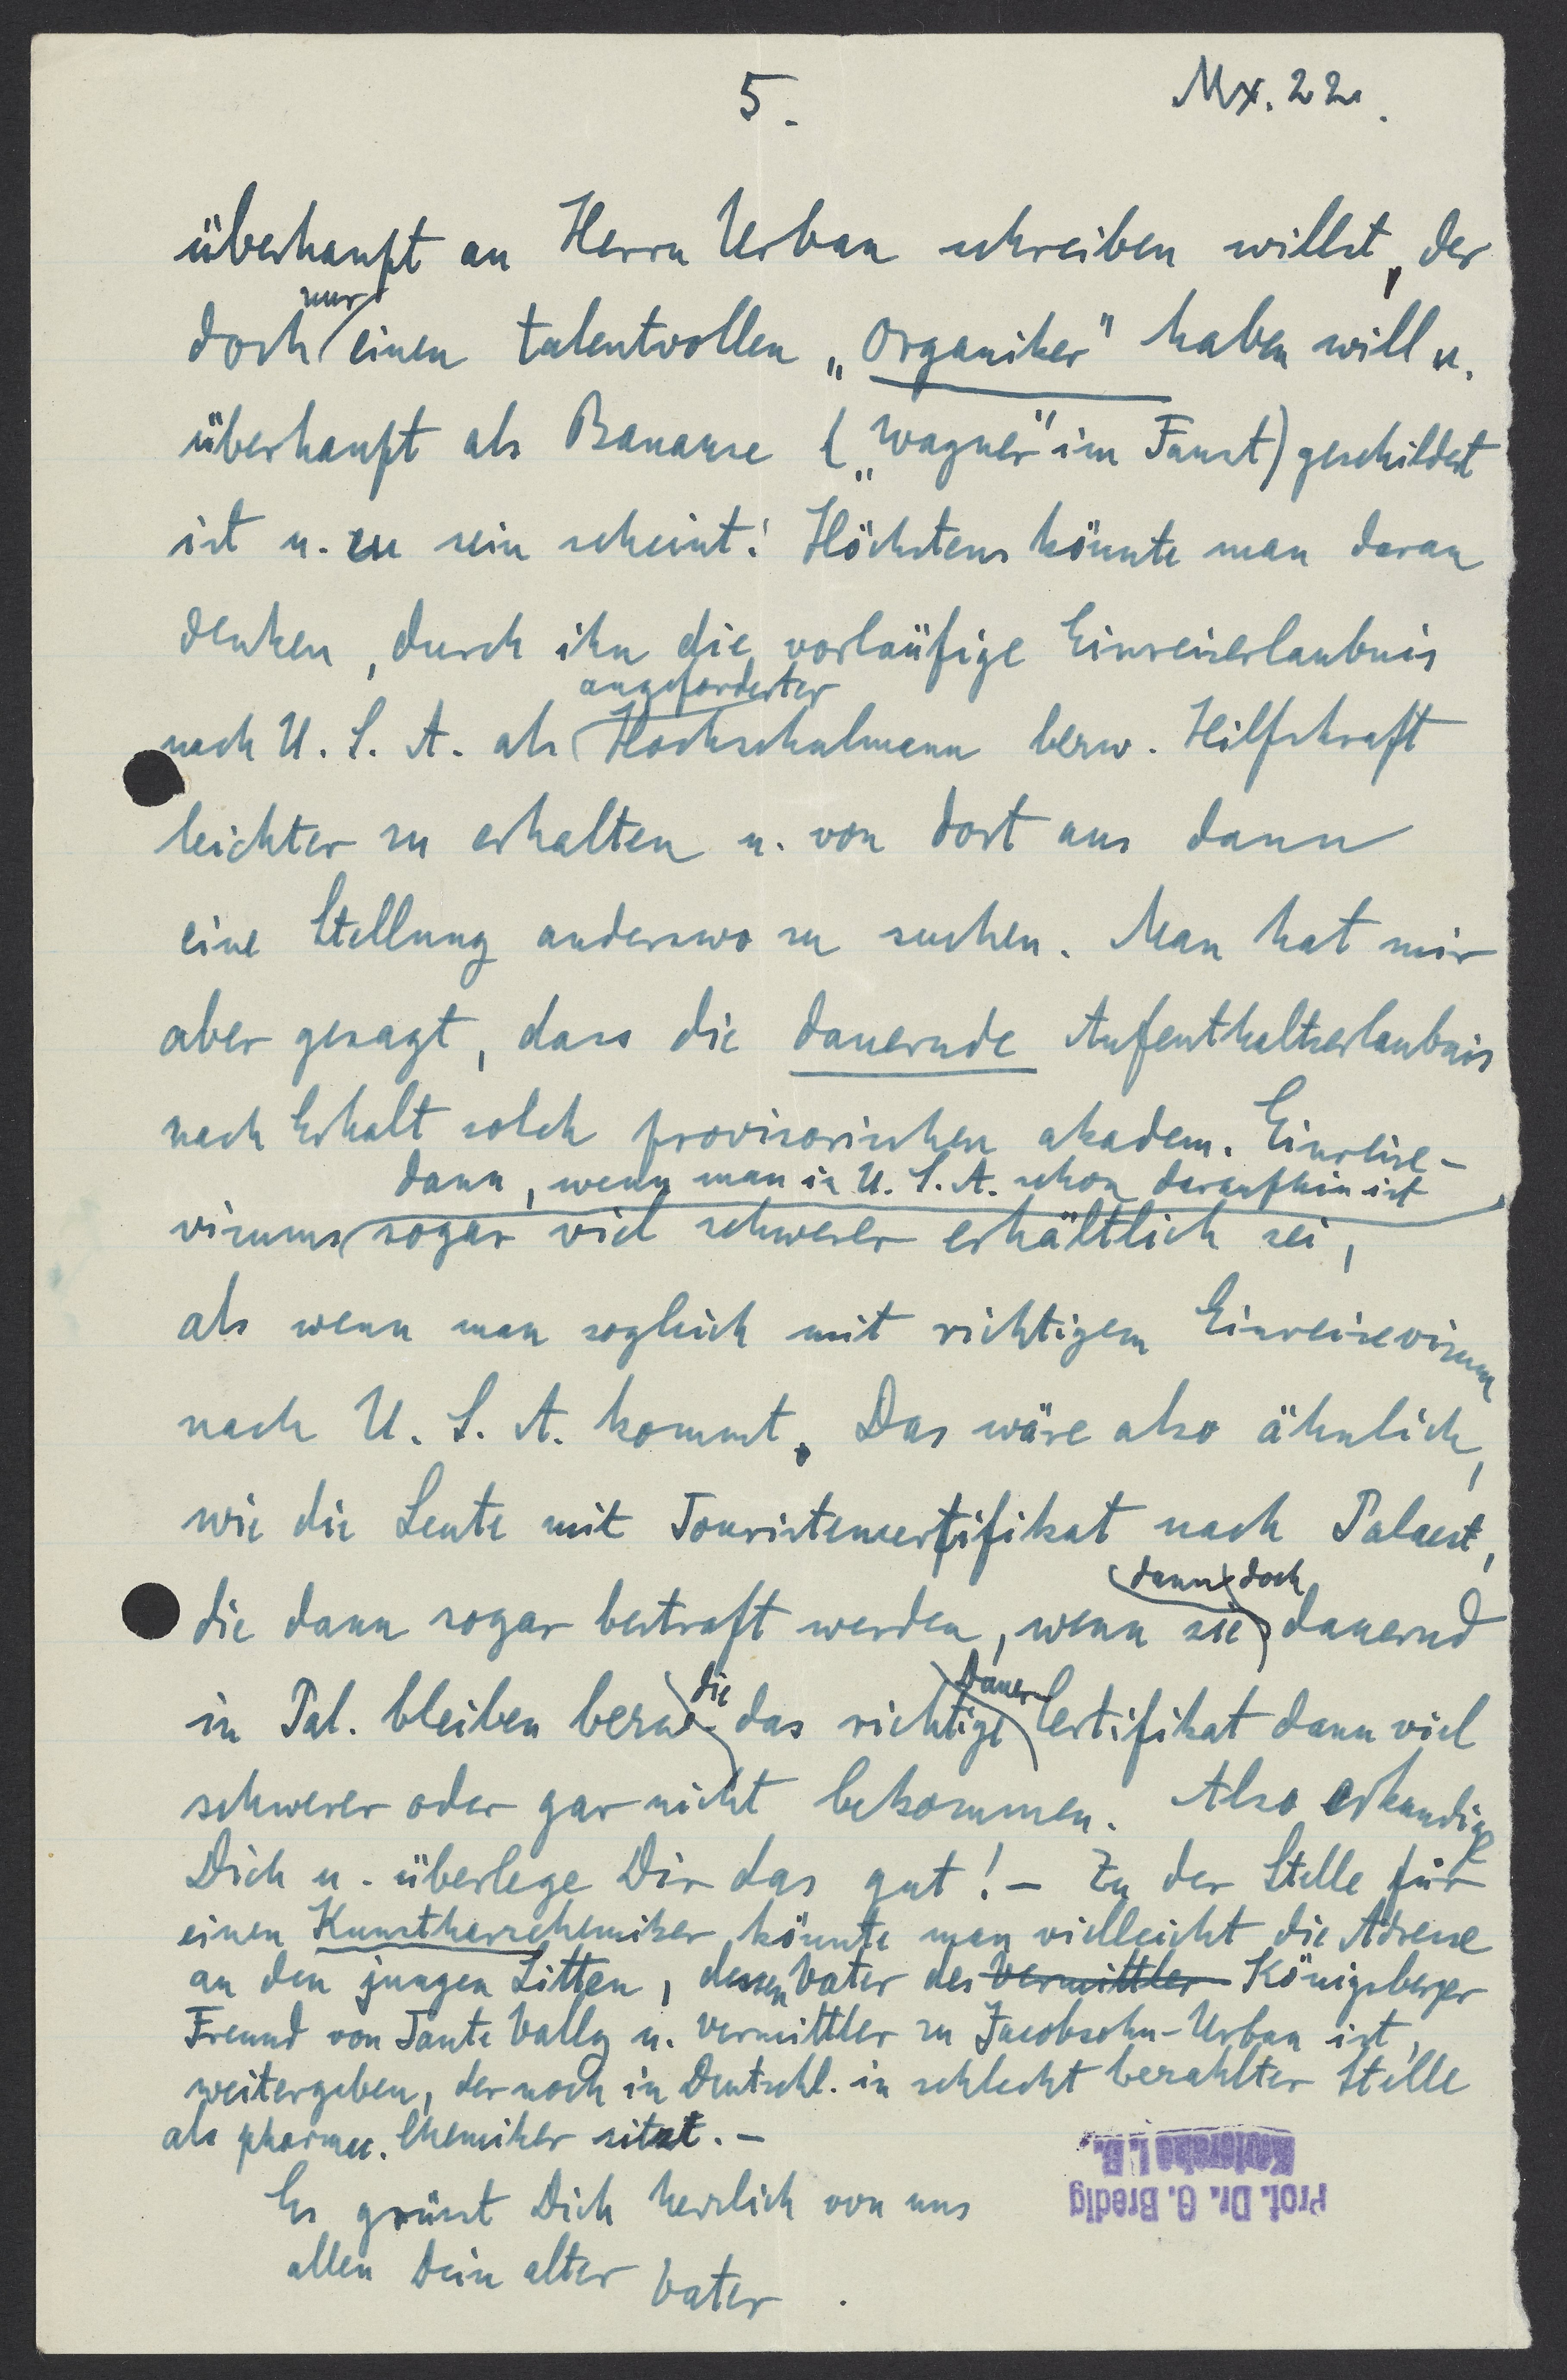 5.
Mx. 22.
überhaupt an Herrn Urban schreiben willst, der
nur
doch einen talentvollen „Organiker" haben will u.
überhaupt als Banause („Wagner" im Faust) geschildert
ist u. zu sein scheint! Höchstens könnte man daran
denken, durch ihn die vorläufige Einreiserlaubnis
angeforderter
nach U. S. A. als Hochschulmann bezw. Hilfskraft
leichter zu erhalten u. von dort aus dann
eine Stellung anderswo zu suchen. Man hat mir
aber gesagt, dass die dauernde Aufenthaltserlaubnis
nach Erhalt solch provisorischen akadem. Einreise-
dann, wenn man in U. S. A. schon daraufhin ist
visums sogar viel schwerer erhältlich sei,
als wenn man sogleich mit richtigem Einreisevisum
nach U. S. A. kommt. Das wäre also ähnlich,
wie die Leute mit Touristencertifikat nach Palaest,
dann doch
die dann sogar bestraft werden, wenn sie dauernd
die Dauer-
in Pal. bleiben bezw. das richtige Certifikat dann viel
schwerer oder gar nicht bekommen. Also erkundige
Dich u. überlege Dir das gut! – Zu der Stelle für
einen Kunstharzchemiker könnte man vielleicht die Adresse
an den jungen Litten, dessen Vater des Vermittler Königsberger
Freund von Tante Vally u. Vermittler zu Jacobsohn-Urban ist,
weitergeben, der noch in Deutschl. in schlecht bezahlter Stelle
als pharmac. Chemiker sitzt. –
Es grüsst Dich herzlich von uns
allen Dein alter Vater.
Prof. Dr. G. Bredig
Karlsruhe i. B.